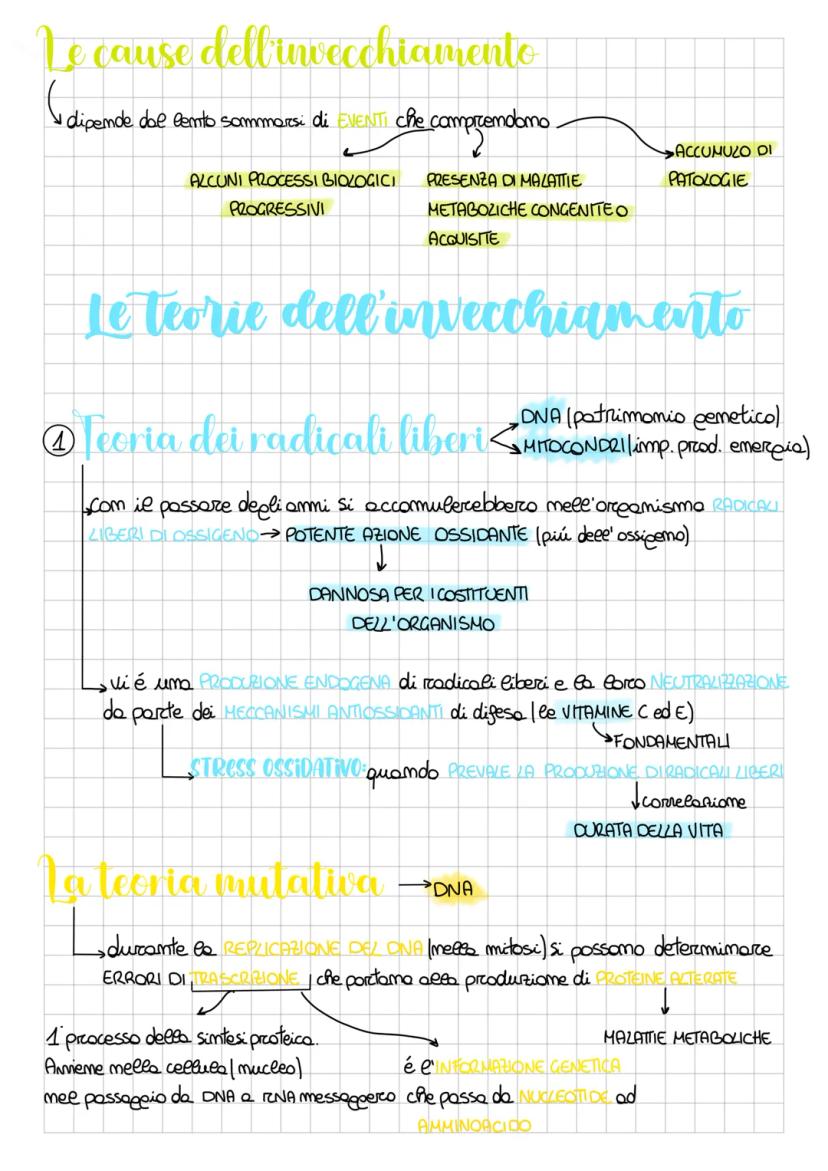 Le cause dell'invecchiamento
dipende dal lento sommarsi di EVENTI che comprendono
ACCUMULO DI
PATOLOGIE
ALCUNI PROCESSI BIOLOGICI
PROGRESSIVI
PRESENZA DI MALATTIE
METABOLICHE CONGENITE O
ACQUISITE
Le Teorie dell'invecchiamento
1 Teoria dei radicali liberi
DNA (patrimonio genetico)
MITOCONDRI (imp. prod. energia)
con il passare degli anni si accomulerebbero nell'organismo RADICALI
LIBERI DI OSSIGENO → POTENTE AZIONE OSSIDANTE (più dell'ossigeno)
DANNOSA PER I COSTITUENTI
DELL'ORGANISMO
vi é una PRODUZIONE ENDOGENA di radicali liberi e la loro NEUTRALIZZAZIONE
da parte dei MECCANISMI ANTIOSSIDANTI di difesa (le VITAMINE C ed E)
FONDAMENTALI
STRESS OSSIDATIVO: quando PREVALE LA PRODUZIONE DI RADICALI LIBERI
correlazione
DURATA DELLA VITA
La teoria mutativa → DNA
durante la REPLICAZIONE DEL DNA (nella mitosi) si possono determinare
ERRORI DI TRASCRIZIONE, che portano alla produzione di PROTEINE ALTERATE
MALATTIE METABOLICHE
1° processo della sintesi proteica.
Avviene nella cellula (nucleo)
nel passaggio da DNA a RNA messaggero
é l'INFORMAZIONE GENETICA
che passa da NUCLEOTIDE ad
AMMINOACIDO